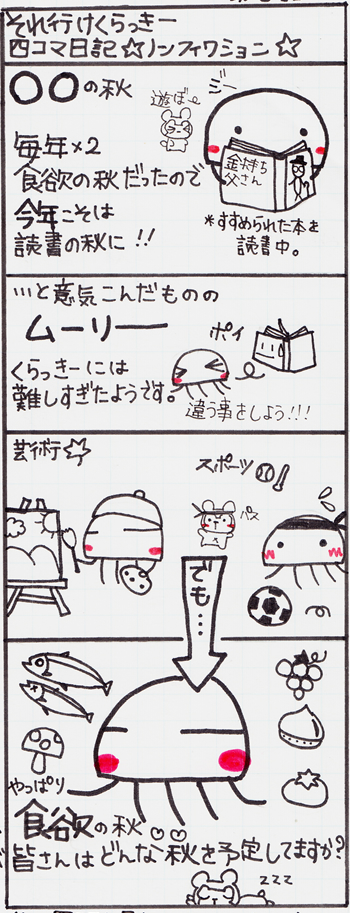 それ行けくらっきー
四コマ日記☆ノンフィクション☆
〇〇の秋
遊ぼ
ジー
毎年×2
食欲の秋だったので
今年こそは
読書の秋に!!
金持ち
父さん
*すすめられた本を
読書中。
…と意気こんだものの
ムーリー
ポイ
くらっきーには
難しすぎたようです。
違う事をしよう!!!
芸術
スポーツ
パス
でも…
やっぱり
食欲の秋
皆さんはどんな秋を予定してますか?
zzz